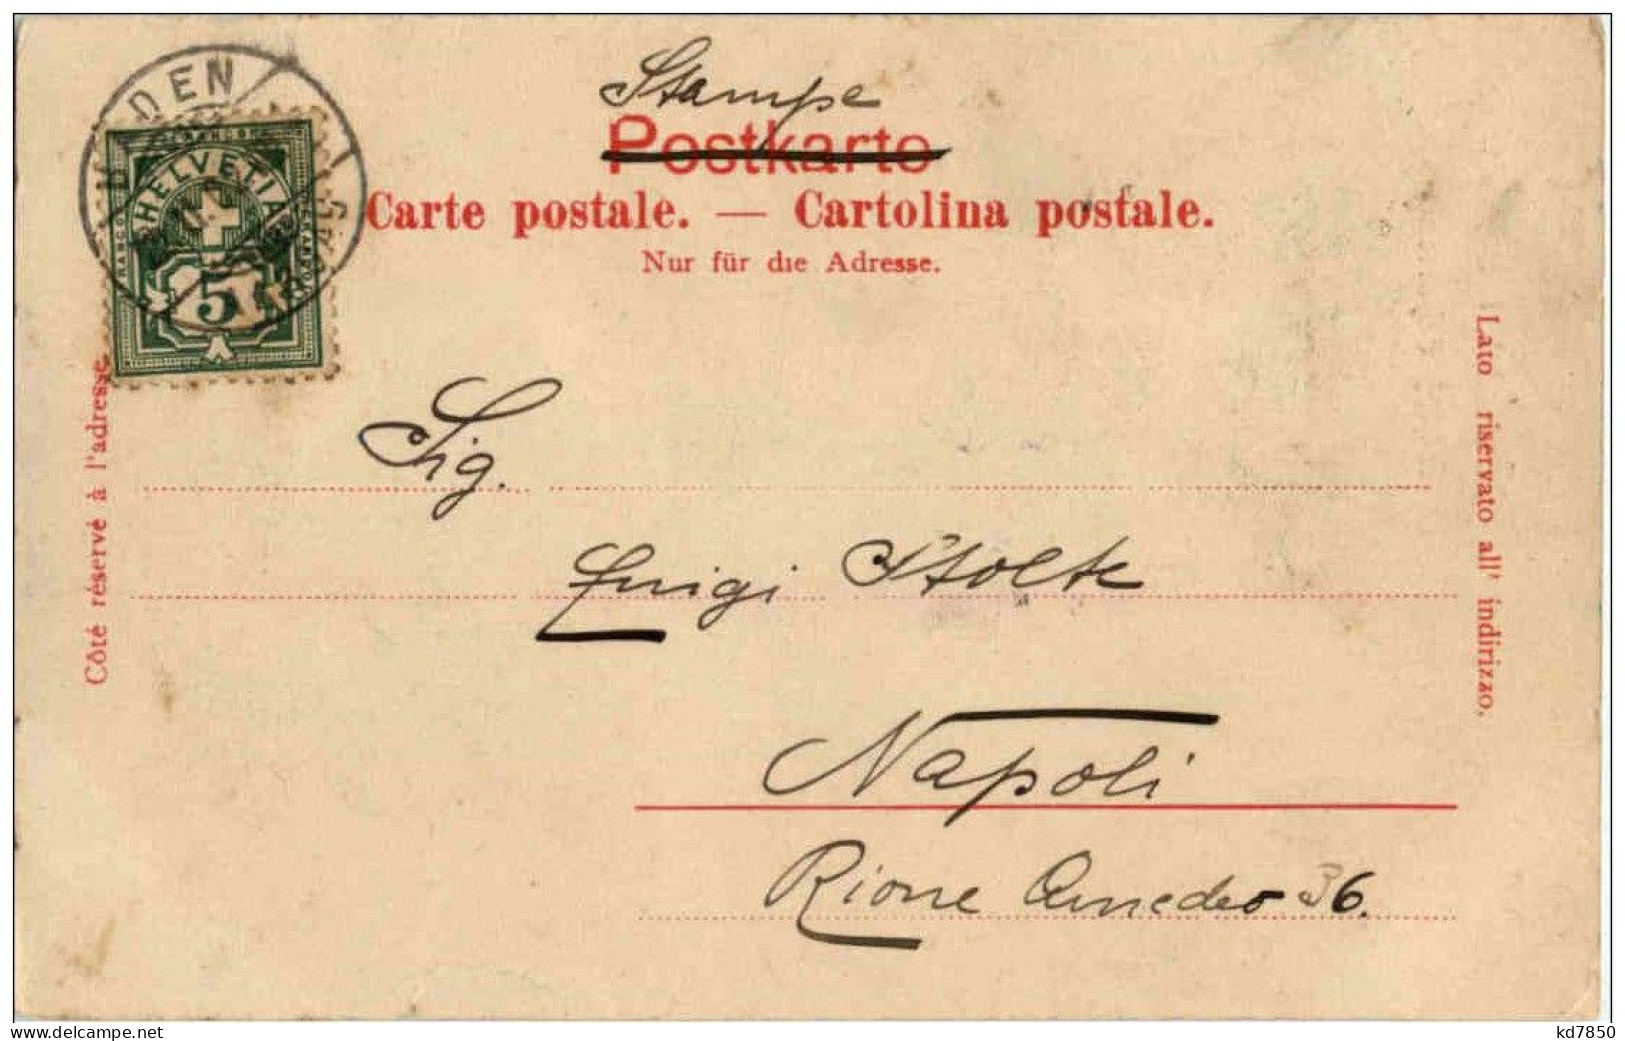 Stampe
Postkarte
Carte postale. — Cartolina postale.
Nur für die Adresse.
DEN
HELVETIA
FRANCO
5
Côté réservé à l'adresse
Lato riservato all' indirizzo.
Sig.
Luigi Stolte
Napoli
Rione Amedeo 36.
www.delcampe.net
kd7850